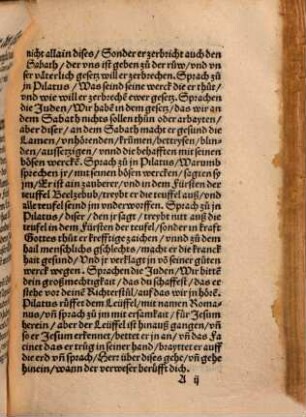 nicht allain dises / Sonder er zerbricht auch den
Sabath / der vns ist geben zů der růw / vnd vn
ser väterlich gesetz will er zerbrechen. Sprach zů
jn Pilatus / Was seind seine werck die er thůt /
vnd wie will er zerbrechē ewer gesetz. Sprachen
die Juden / Wir habē in dem gesetz / das wir an
dem Sabath nichts sollen thůn oder arbayten /
aber diser / an dem Sabath macht er gesund die
Lamen / vnhörenden / krümen / bettrysen / blin-
den / aussetzigen / vnnd die behafften mit seinen
bösen werckē. Sprach zů jn Pilatus / Warumb
sprechen jr / mit seinen bösen wercken / sagten so
jm / Er ist ain zauberer / vnd in dem Fürsten der
teuffel Beelzebub / treybt er die teuffel auß / vnd
alle teufel seind jm vnderworffen. Sprach zů jn
Pilatus / diser / den jr sagt / treybt nitt auß die
teufel in dem Fürsten der teufel / sonder in krafft
Gottes thůt er krefftige zaichen / vnnd zů dem
hail menschlichs gschlechts / macht er die kranck
hait gesund / Vnd jr verklagt jn võ seiner gůten
werck wegen. Sprachen die Juden / Wir bittē
dein großmechtigkait / das du schaffest / das er
stehe vor deine Richterstůl / auf das wir jn hörē.
Pilatus rüffet dem Leüffel / mit namen Roma-
nus / vñ sprach zů jm mit ersamkait / für Jesum
herein / aber der Leüffel ist hinauß gangen / vñ
so er Jesum erkennet / bettet er jn an / vñ das Fa
cinet das er trůg in seiner hand / braytet er auff
die erd vñ sprach / Herr über dises gehe / vñ gehe
hinein / wann der verweser berüfft dich.
A ij